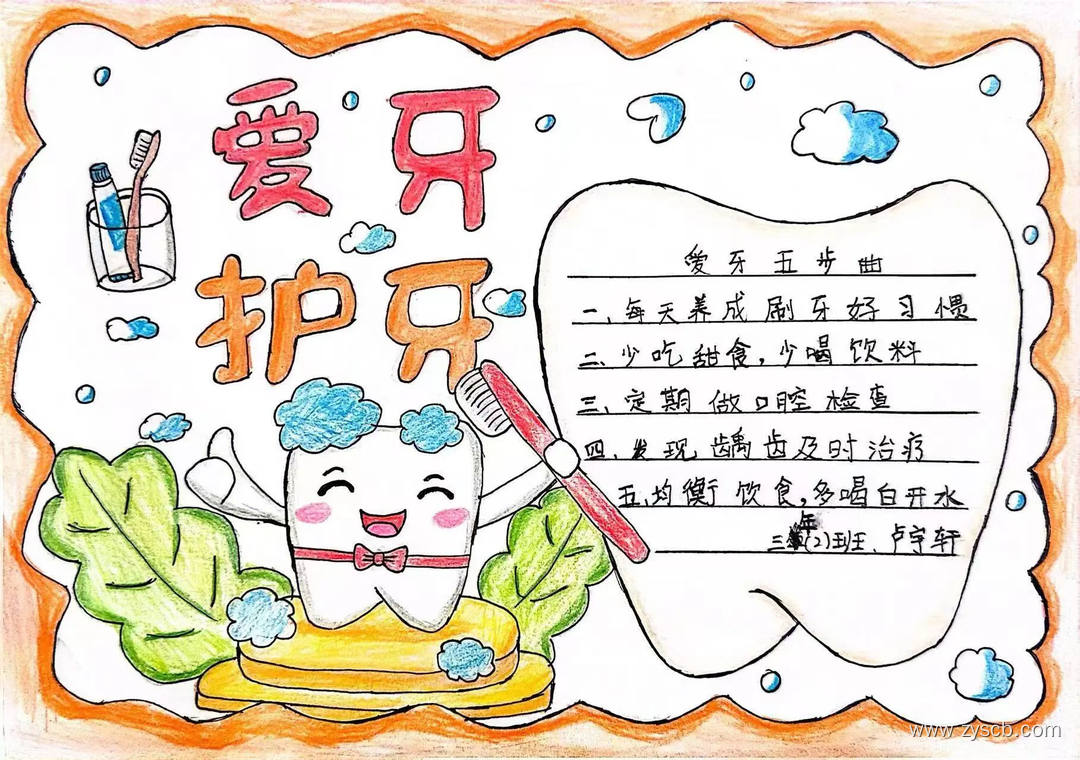 爱牙
护牙
爱牙五步曲
一、每天养成刷牙好习惯
二、少吃甜食,少喝饮料
三、定期做口腔检查
四、发现龋齿及时治疗
五、均衡饮食,多喝白开水
三年(2)班、卢宇轩
www.zyscb.com